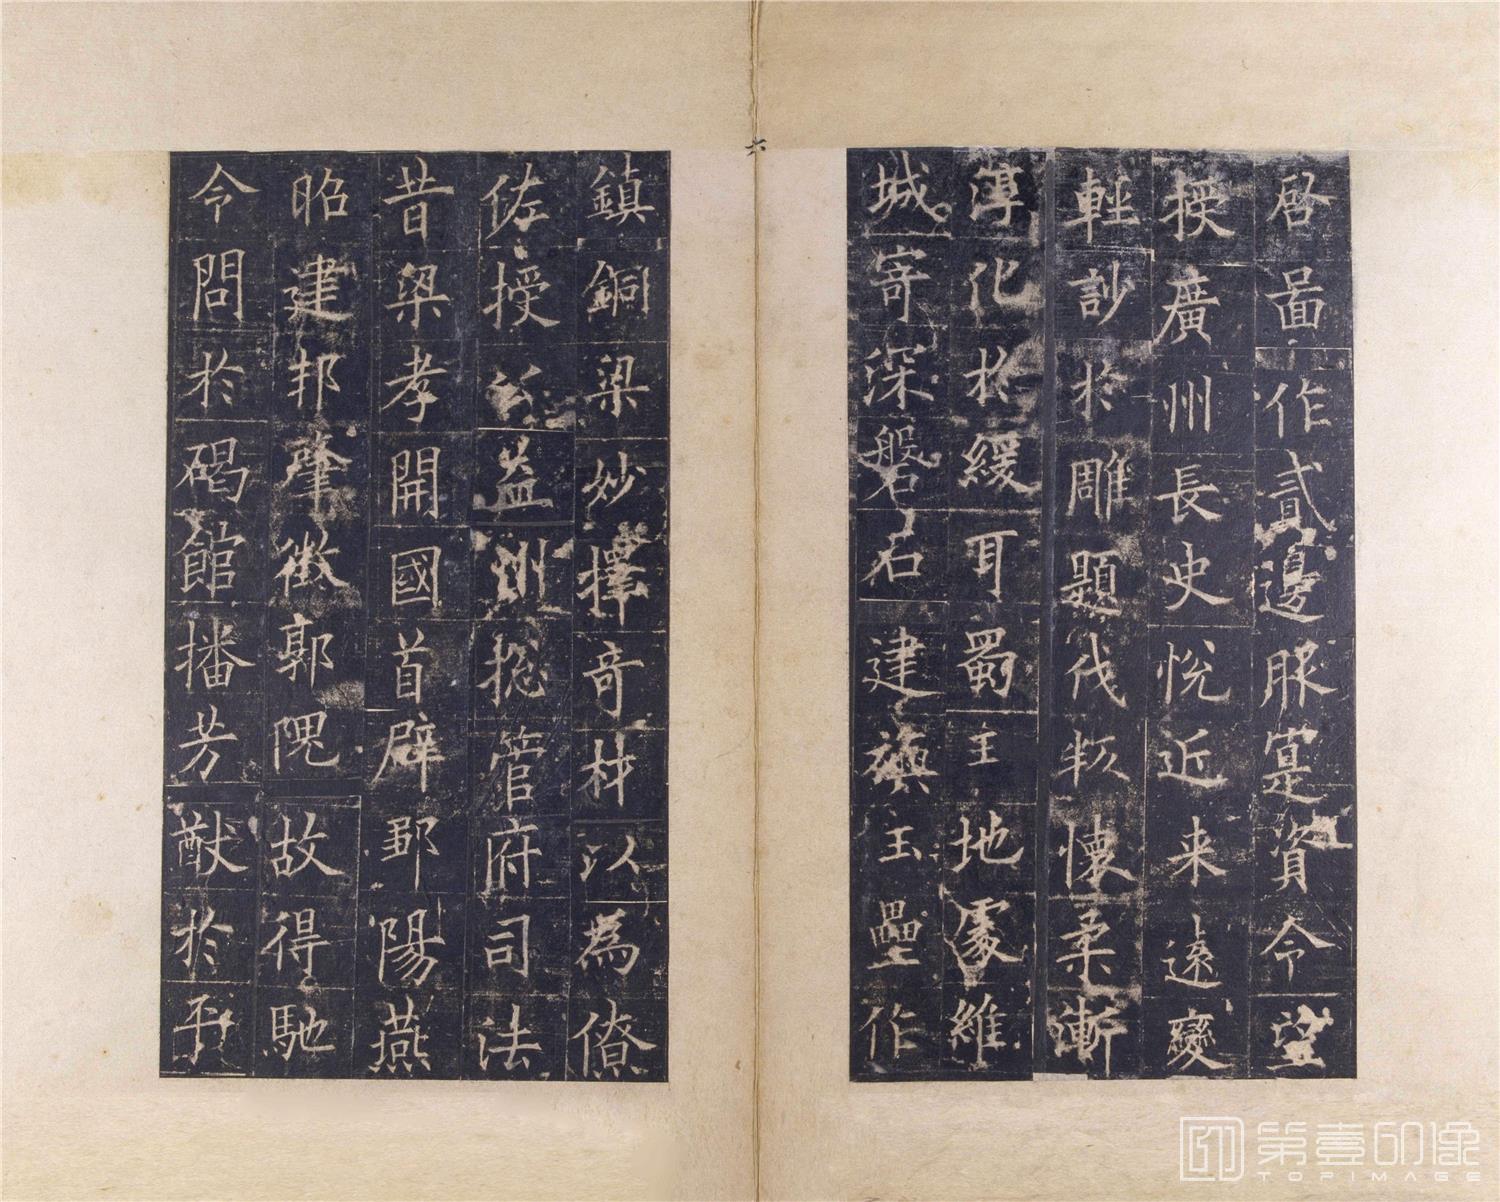 啓啚作貳邊服寔資令望
授廣州長史悅近来遠變
輕訬於雕題伐叛懷柔漸
淳化於緩耳蜀王地處維
城寄深磐石建旟玉壘作
鎮銅梁妙擇奇材以為僚
佐授公益州揔管府司法
昔梁孝開國首辟鄒陽燕
昭建邦肇徵郭隗故得馳
令問於碣館播芳猷於平
六
第壹印像
TOPIMAGE